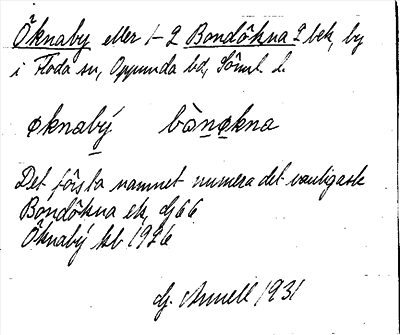 Öknaby eller 1-2 Bondökna 2 bek, by
i Floda sn, Oppunda hd, Söml. l.
øknabý bònøkna
Det första namnet numera det vanligaste
Bondökna ek, dj 66
Öknaby kb 1926
dj. Arnell 1931